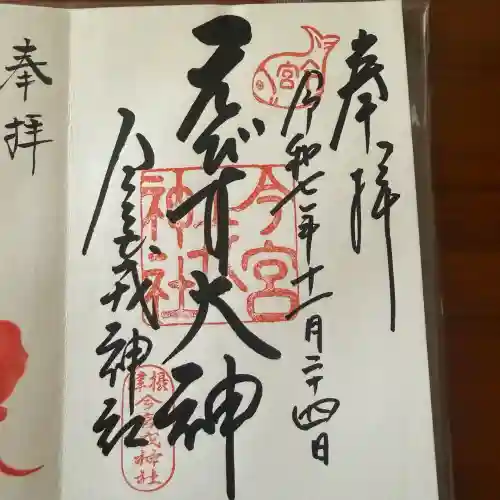 奉拝
今宮
令和七年十一月二十四日
えびす大神
今宮戎神社
今宮戎神社
摂津
今宮戎神社
奉拝